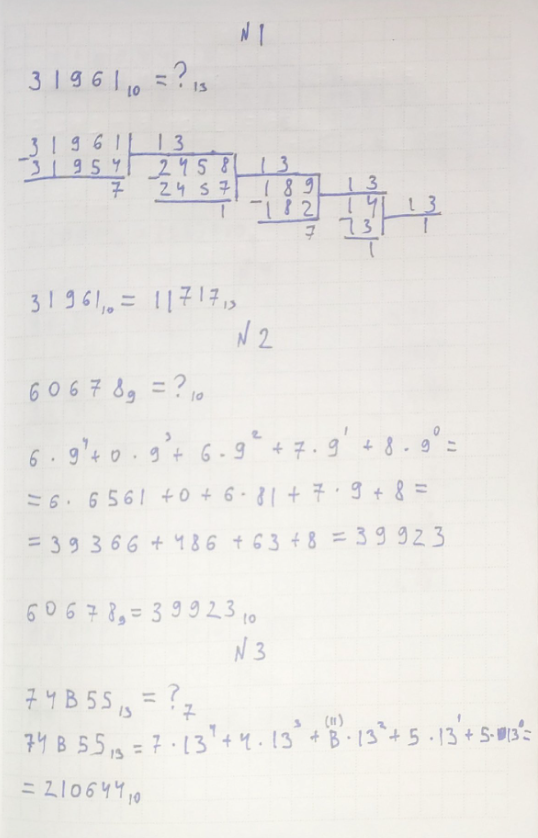 N1
31961₁₀ = ?₁₃
-31961 | 13
31954 | -2458 | 13
7 | 2457 | -189 | 13
1 | 182 | 14 | 13
7 | 13 | 1
1
31961₁₀ = 11717₁₃
N2
60678₉ = ?₁₀
6 · 9⁴ + 0 · 9³ + 6 · 9² + 7 · 9¹ + 8 · 9⁰ =
= 6 · 6561 + 0 + 6 · 81 + 7 · 9 + 8 =
= 39366 + 486 + 63 + 8 = 39923
60678₉ = 39923₁₀
N3
74B55₁₃ = ?₇
74B55₁₃ = 7 · 13⁴ + 4 · 13³ + B(11) · 13² + 5 · 13¹ + 5 · 13⁰ =
= 210644₁₀